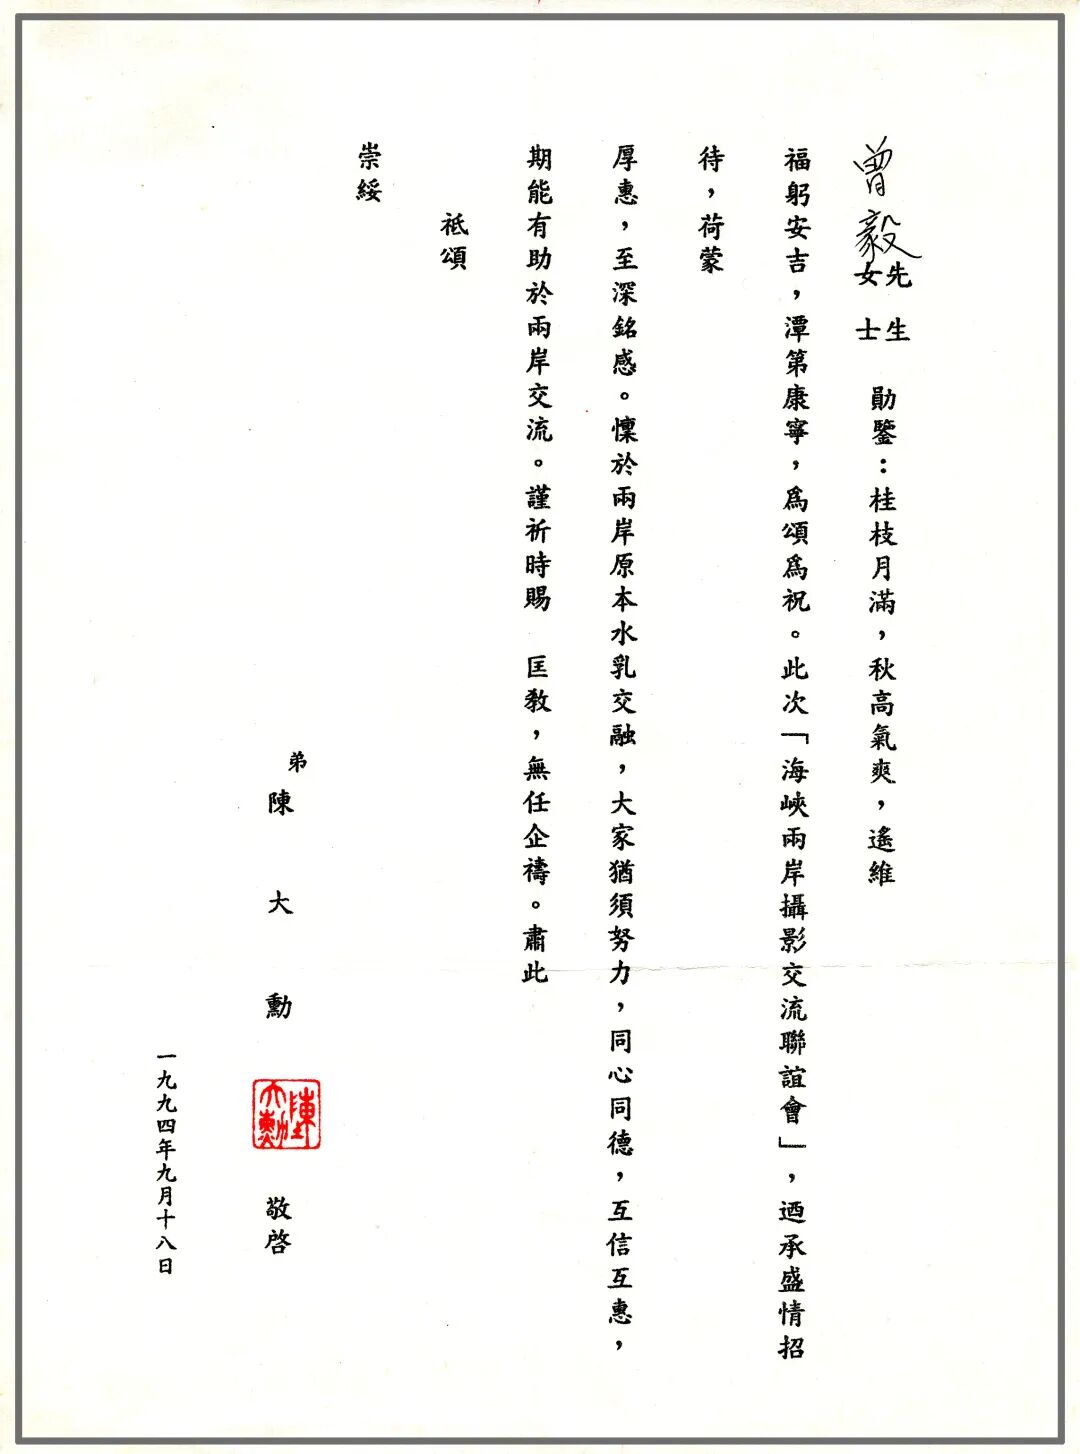 曾毅先生女士　勛鑒：桂枝月滿，秋高氣爽，遙維
福躬安吉，潭第康寧，為頌為祝。此次「海峽兩岸攝影交流聯誼會」，迺承盛情招
待，荷蒙
厚惠，至深銘感。懍於兩岸原本水乳交融，大家猶須努力，同心同德，互信互惠，
期能有助於兩岸交流。謹祈時賜　匡教，無任企禱。肅此
祗頌
崇綏
弟陳大勳
陳大勳
敬啓
一九九四年九月十八日